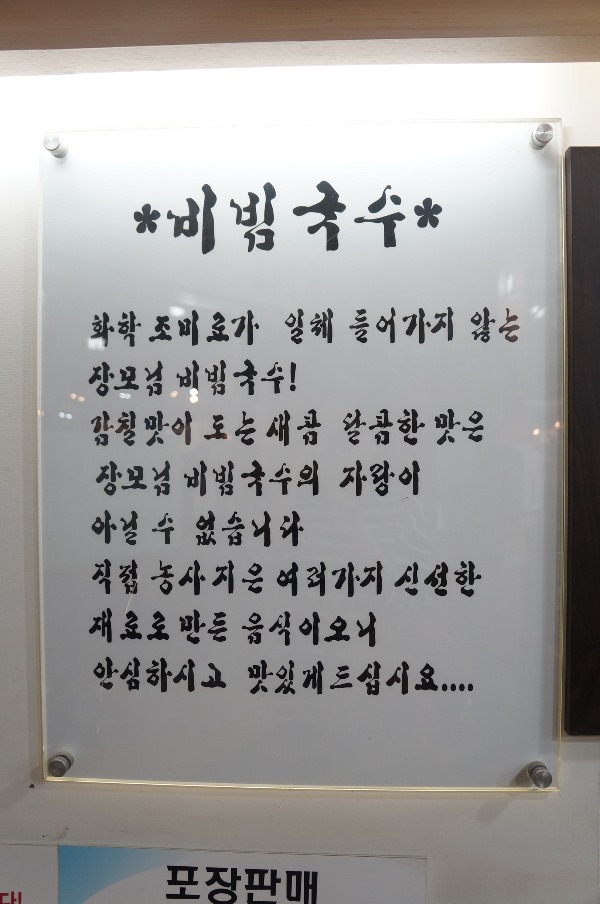 *비빔국수*
화학 조미료가 일체 들어가지 않는
장모님 비빔국수!
감칠맛이 도는 새콤 달콤한 맛은
장모님 비빔국수의 자랑이
아닐 수 없습니다
직접 농사지은 여러가지 신선한
재료로 만든 음식이오니
안심하시고 맛있게드십시요....
포장판매
다!